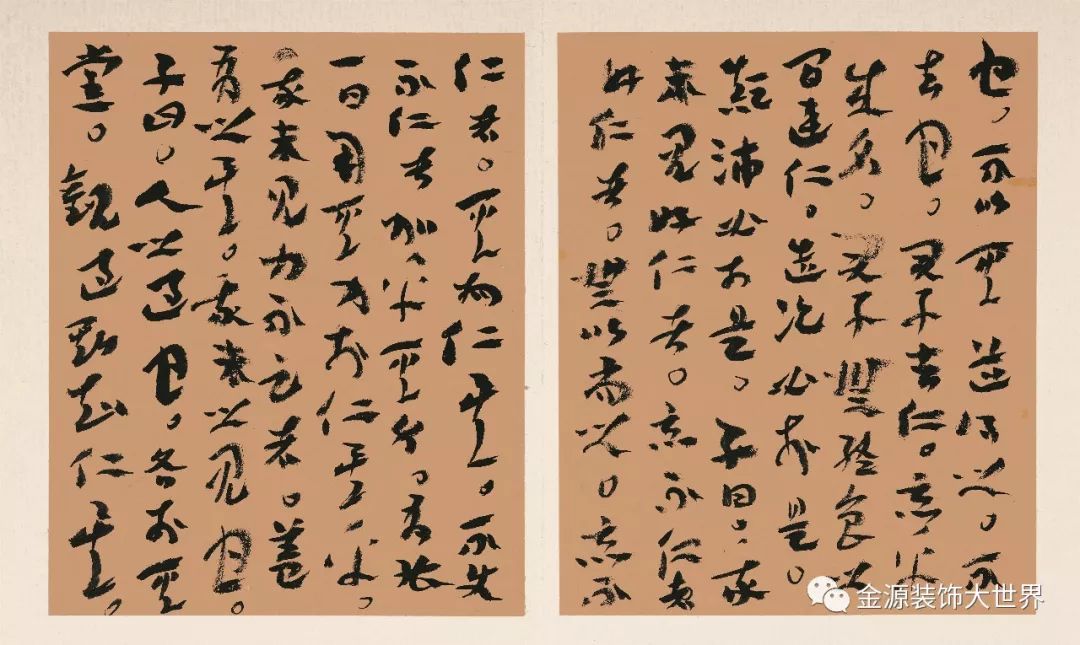 也。不以其道得之。不
去也。君子去仁。惡乎
成名。君子無終食之
間違仁。造次必於是。
顛沛必於是。子曰。我
未見好仁者。惡不仁者
好仁者。無以尚之。惡不
仁者。其為仁矣。不使
不仁者加乎其身。有能
一日用其力於仁矣乎。
我未見力不足者。蓋
有之矣。我未之見也。
子曰。人之過也。各於其
黨。觀過斯知仁矣。
金源装饰大世界